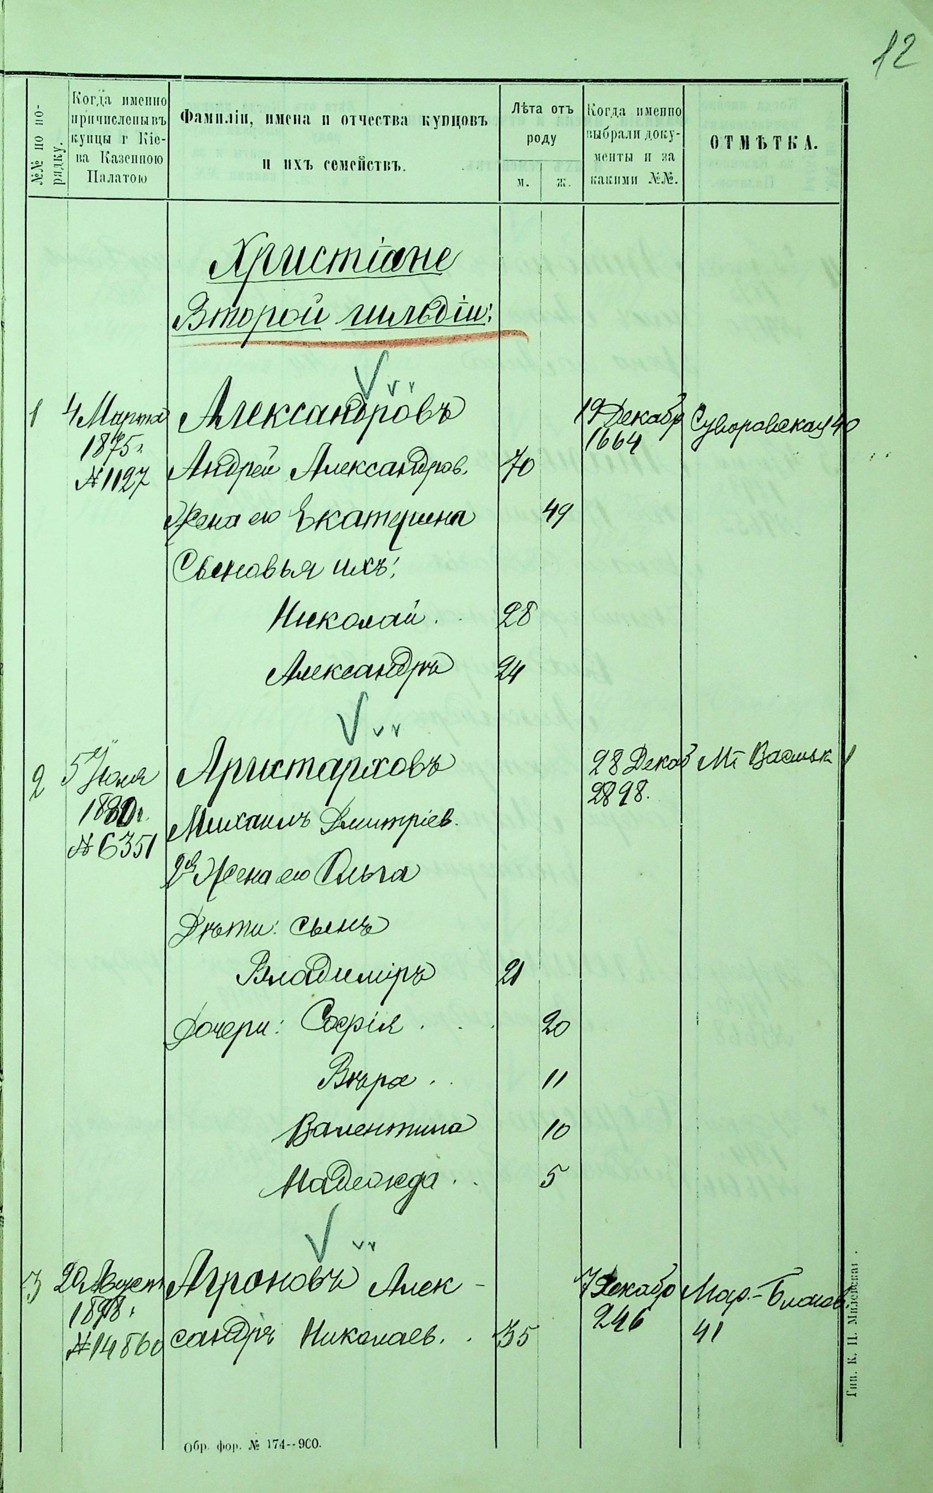 12
№№ по по-
рядку.
Когда именно
причислены въ
купцы г Кіе-
ва Казенною
Палатою
Фамиліи, имена и отчества купцовъ
и ихъ семействъ.
Лѣта отъ
роду
м. ж.
Когда именно
выбрали доку-
менты и за
какими №№.
ОТМѢТКА.
Христіане
Второй гильдіи:
1 4 Марта Александровъ 19 Декабр Суворовская 40
1875 г. 1664
№ 1127 Андрей Александров. 70
Жена его Екатерина 49
Сыновья ихъ:
Николай . . 28
Александръ 24
2 5 Іюля Аристарховъ 28 Декаб М. Васильк 1
1880 г. 2898.
№ 6351 Михаилъ Дмитріев.
Жена его Ольга
Дѣти: сынъ
Владиміръ 21
Дочери: Софія . . . 20
Вѣра . . 11
Валентина 10
Надежда . . 5
3 20 Август Агроновъ Алек- 7 Декабр Мар.-Благов.
1878 г. 246 41
№ 14860 сандръ Николаев. . 35
Обр. фор. № 174--900.
Тип. К. П. Милевскаг.